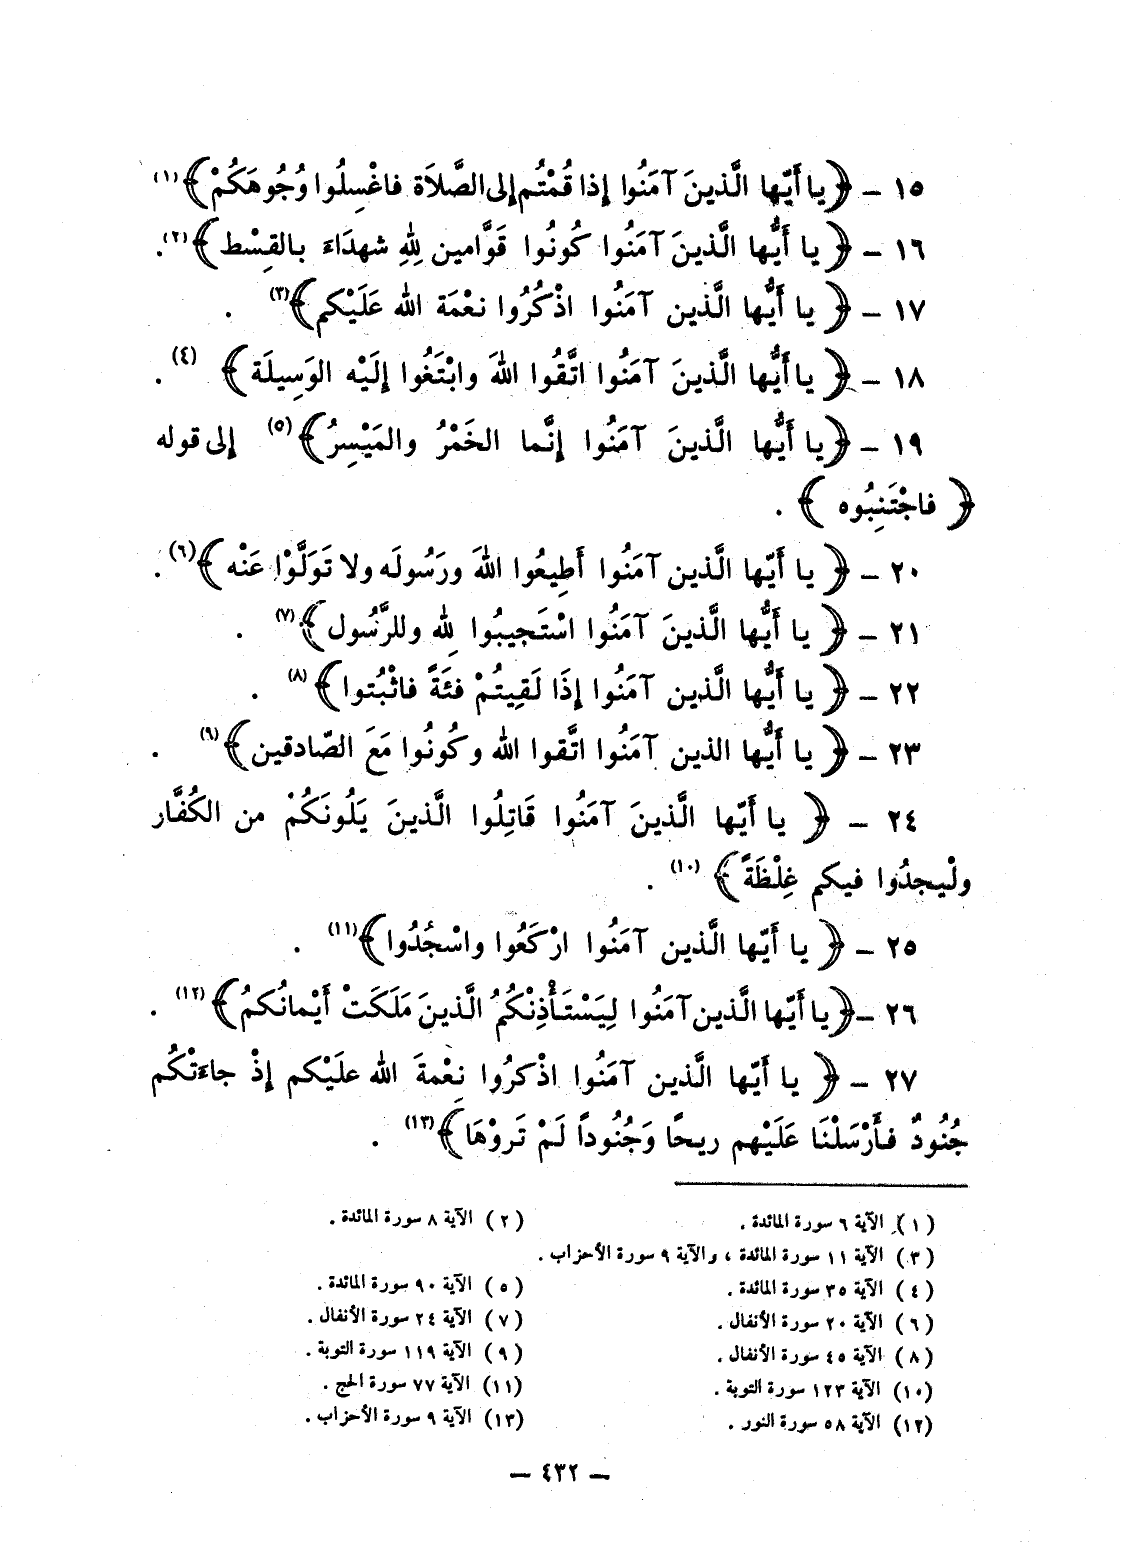 ١٥ – ﴿ يا أَيّها الَّذينَ آمَنُوا إذا قُمْتُم إلى الصَّلاَة فاغْسِلُوا وُجُوهَكُمْ ﴾(١)
١٦ – ﴿ يا أَيُّها الَّذينَ آمَنُوا كُونُوا قَوَّامين لِلهِ شهدَاءَ بالقِسْط ﴾(٢).
١٧ – ﴿ يا أَيُّها الَّذين آمَنُوا اذْكُرُوا نعْمَة الله عَلَيْكم ﴾(٣) .
١٨ – ﴿ يا أَيُّها الَّذينَ آمَنُوا اتَّقُوا اللهَ وابْتَغُوا إلَيْه الوَسِيلَة ﴾ (٤) .
١٩ – ﴿ يا أَيُّها الَّذينَ آمَنُوا إنَّما الخَمْرُ والمَيْسِرُ ﴾(٥) إلى قوله
﴿ فاجْتَنِبُوه ﴾ .
٢٠ – ﴿ يا أَيّها الَّذين آمَنُوا أَطِيعُوا اللهَ ورَسُولَه ولا تَوَلَّوْا عَنْه ﴾(٦).
٢١ – ﴿ يا أَيُّها الَّذينَ آمَنُوا اسْتَجيبُوا لِله وللرَّسُول ﴾(٧) .
٢٢ – ﴿ يا أَيُّها الَّذين آمَنُوا إذَا لَقِيتُمْ فئَةً فاثْبُتوا ﴾(٨) .
٢٣ – ﴿ يا أَيُّها الذين آمَنُوا اتَّقوا الله وكُونُوا مَعَ الصّادقين ﴾(٩) .
٢٤ – ﴿ يا أَيّها الَّذينَ آمَنُوا قَاتِلُوا الَّذينَ يَلُونَكُمْ من الكُفَّار
ولْيجدُوا فيكم غِلْظَةً ﴾ (١٠) .
٢٥ – ﴿ يا أَيّها الَّذين آمَنُوا ارْكَعُوا واسْجُدُوا ﴾(١١) .
٢٦ – ﴿ يا أَيّها الَّذين آمَنُوا لِيَسْتَأْذِنْكُمُ الَّذينَ مَلَكَتْ أَيْمانُكمُ ﴾(١٢) .
٢٧ – ﴿ يا أَيّها الَّذين آمَنُوا اذْكرُوا نِعْمةَ الله علَيْكم إذْ جاءَتْكُم
جُنُودٌ فأَرْسَلْنَا عَلَيْهم ريحًا وَجُنُوداً لَمْ تَروْهَا ﴾(١٣) .
(١) الآية ٦ سورة المائدة . (٢) الآية ٨ سورة المائدة .
(٣) الآية ١١ سورة المائدة ، والآية ٩ سورة الأحزاب .
(٤) الآية ٣٥ سورة المائدة . (٥) الآية ٩٠ سورة المائدة .
(٦) الآية ٢٠ سورة الأنفال . (٧) الآية ٢٤ سورة الأنفال .
(٨) الآية ٤٥ سورة الأنفال . (٩) الآية ١١٩ سورة التوبة .
(١٠) الآية ١٢٣ سورة التوبة . (١١) الآية ٧٧ سورة الحج .
(١٢) الآية ٥٨ سورة النور . (١٣) الآية ٩ سورة الأحزاب .
– ٤٣٢ –